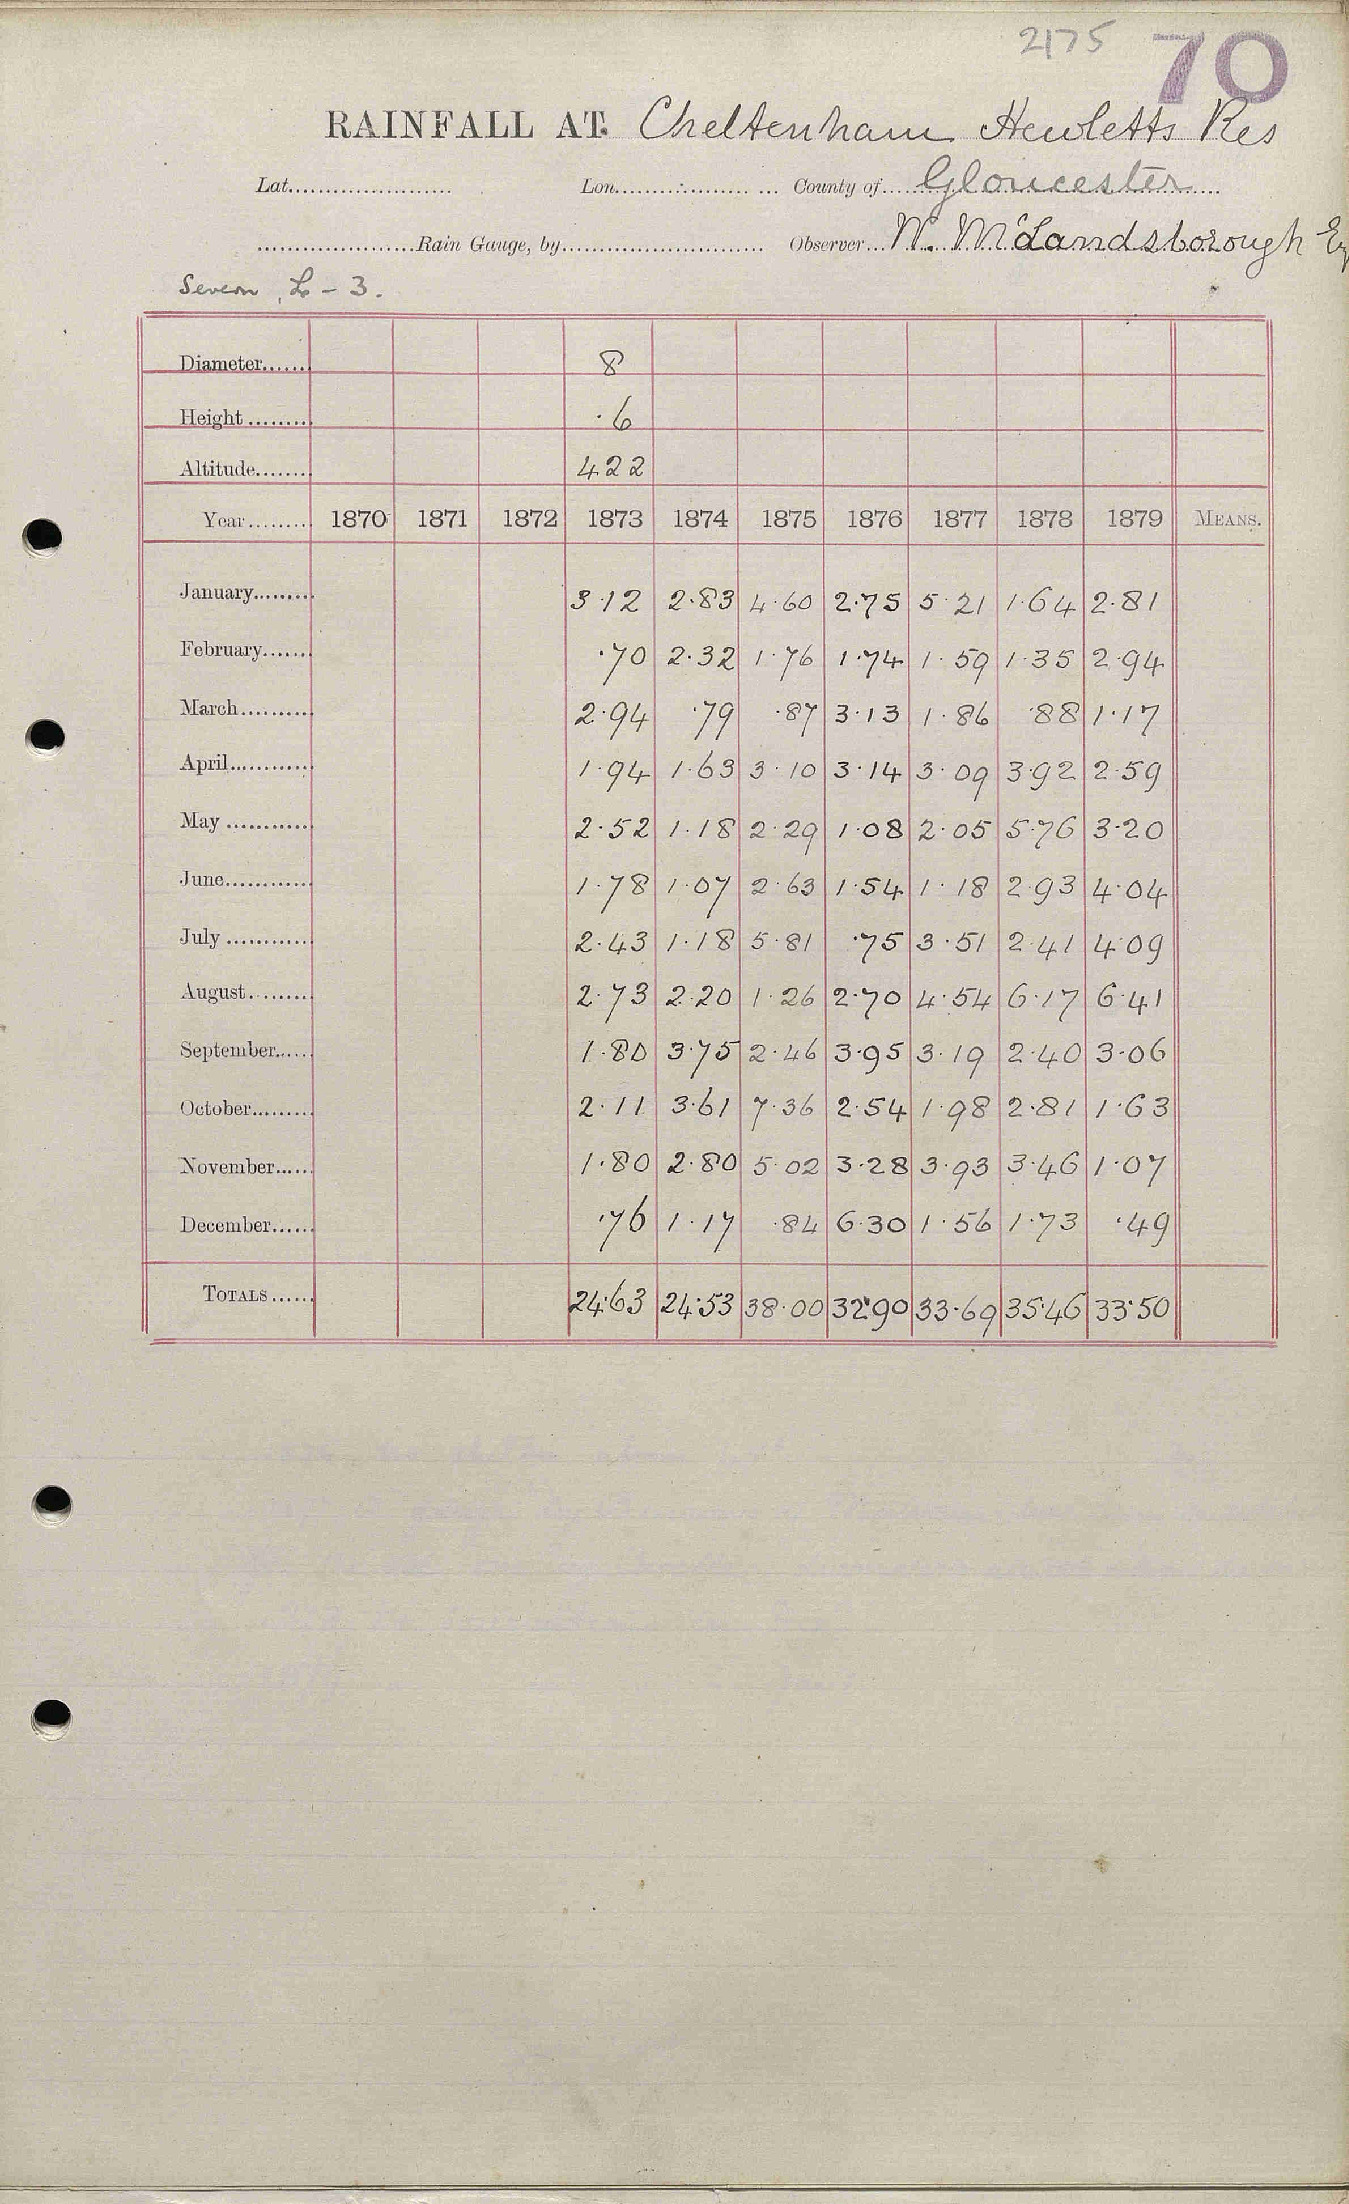 2175 70
RAINFALL AT Cheltenham Hewletts Res
Lat...................... Lon...................... County of Gloucester
.....................Rain Gauge, by........................... Observer W. McLandsborough
Severn, L - 3.
Diameter....... 8
Height ......... ·6
Altitude........ 422
Year......... 1870 1871 1872 1873 1874 1875 1876 1877 1878 1879 MEANS.
January......... 3·12 2·83 4·60 2·75 5·21 1·64 2·81
February....... ·70 2·32 1·76 1·74 1·59 1·35 2·94
March.......... 2·94 ·79 ·87 3·13 1·86 ·88 1·17
April............ 1·94 1·63 3·10 3·14 3·09 3·92 2·59
May ............ 2·52 1·18 2·29 1·08 2·05 5·76 3·20
June............ 1·78 1·07 2·63 1·54 1·18 2·93 4·04
July ............ 2·43 1·18 5·81 ·75 3·51 2·41 4·09
August......... 2·73 2·20 1·26 2·70 4·54 6·17 6·41
September..... 1·80 3·75 2·46 3·95 3·19 2·40 3·06
October......... 2·11 3·61 7·36 2·54 1·98 2·81 1·63
November...... 1·80 2·80 5·02 3·28 3·93 3·46 1·07
December...... ·76 1·17 ·84 6·30 1·56 1·73 ·49
TOTALS...... 24·63 24·53 38·00 32·90 33·69 35·46 33·50